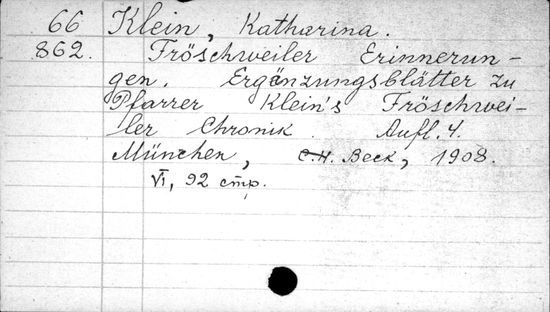 66 Klein, Katharina.
862. Fröschweiler Erinnerun-
gen. Ergänzungsblätter zu
Pfarrer Klein's Fröschwei-
ler Chronik. Aufl. 4.
München, C.H. Beck, 1908.
VI, 92 стр.